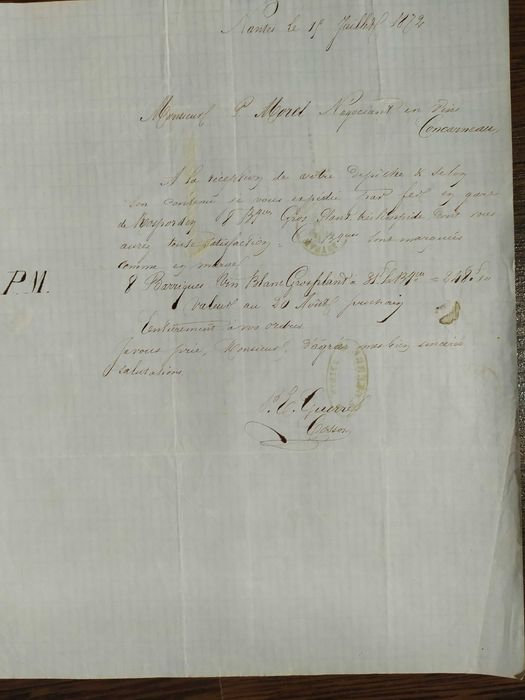 Nantes le 19 Juillet 1872
Monsieur P. Morel Négociant en vins
Concarneau
A la réception de votre dépêche & selon
son contenu je vous expédie par fer en gare
de Rosporden 8 Bques Gros Plant dont vous
aurez toute satisfaction = Ces Bques sont marquées
comme en marge
P.M.
8 Barriques Vin Blanc Grosplant à 31f la Bque = 248f
valeur au 20 Août prochain
Entièrement à vos ordres
Je vous prie, Monsieur, d'agréer mes bien sincères
salutations
P. E. Guerre